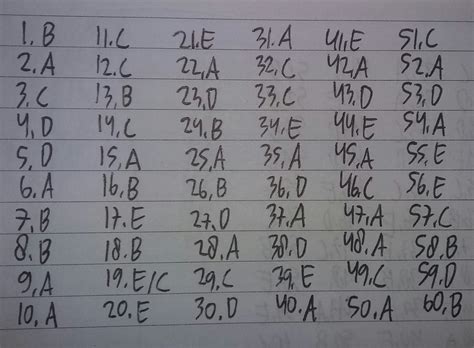 1. B 11. C 21. E 31. A 41. E 51. C
2. A 12. C 22. A 32. C 42. A 52. A
3. C 13. B 23. D 33. C 43. D 53. D
4. D 14. C 24. B 34. E 44. E 54. A
5. D 15. A 25. A 35. A 45. A 55. E
6. A 16. B 26. B 36. D 46. C 56. E
7. B 17. E 27. D 37. A 47. A 57. C
8. B 18. B 28. A 38. D 48. A 58. B
9. A 19. E/C 29. C 39. E 49. C 59. D
10. A 20. E 30. D 40. A 50. A 60. B